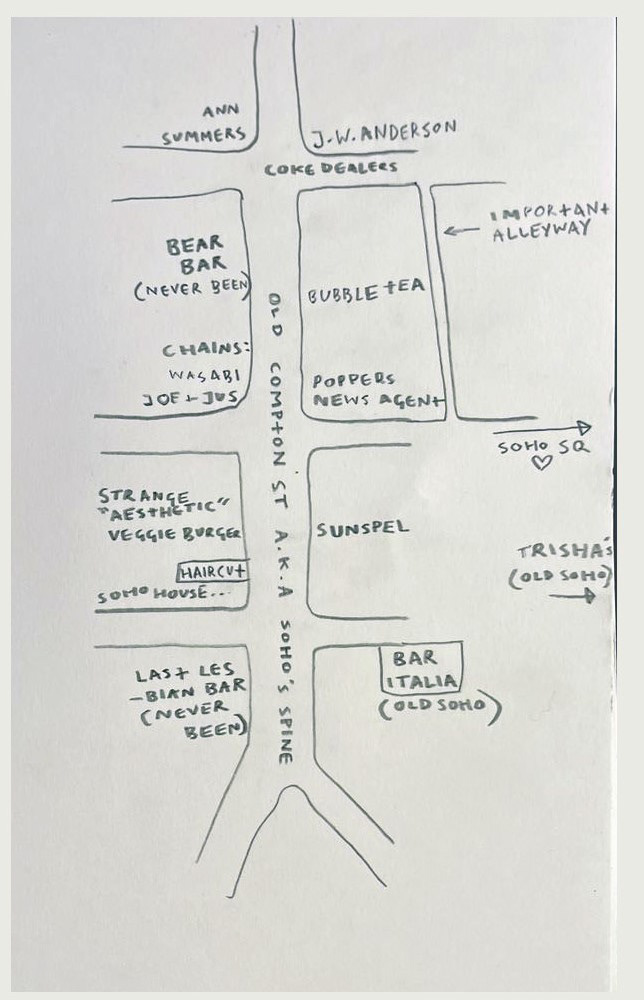 ANN
SUMMERS
J.W. ANDERSON
COKE DEALERS
IMPORTANT
ALLEYWAY
BEAR
BAR
(NEVER BEEN)
BUBBLE TEA
CHAINS:
WASABI
JOE + JUS
POPPERS
NEWS AGENT
OLD COMPTON ST A.K.A SOHO'S SPINE
SOHO SQ
♡
STRANGE
"AESTHETIC"
VEGGIE BURGER
SUNSPEL
HAIRCUT
SOHO HOUSE...
TRISHA'S
(OLD SOHO)
LAST LES
-BIAN BAR
(NEVER
BEEN)
BAR
ITALIA
(OLD SOHO)